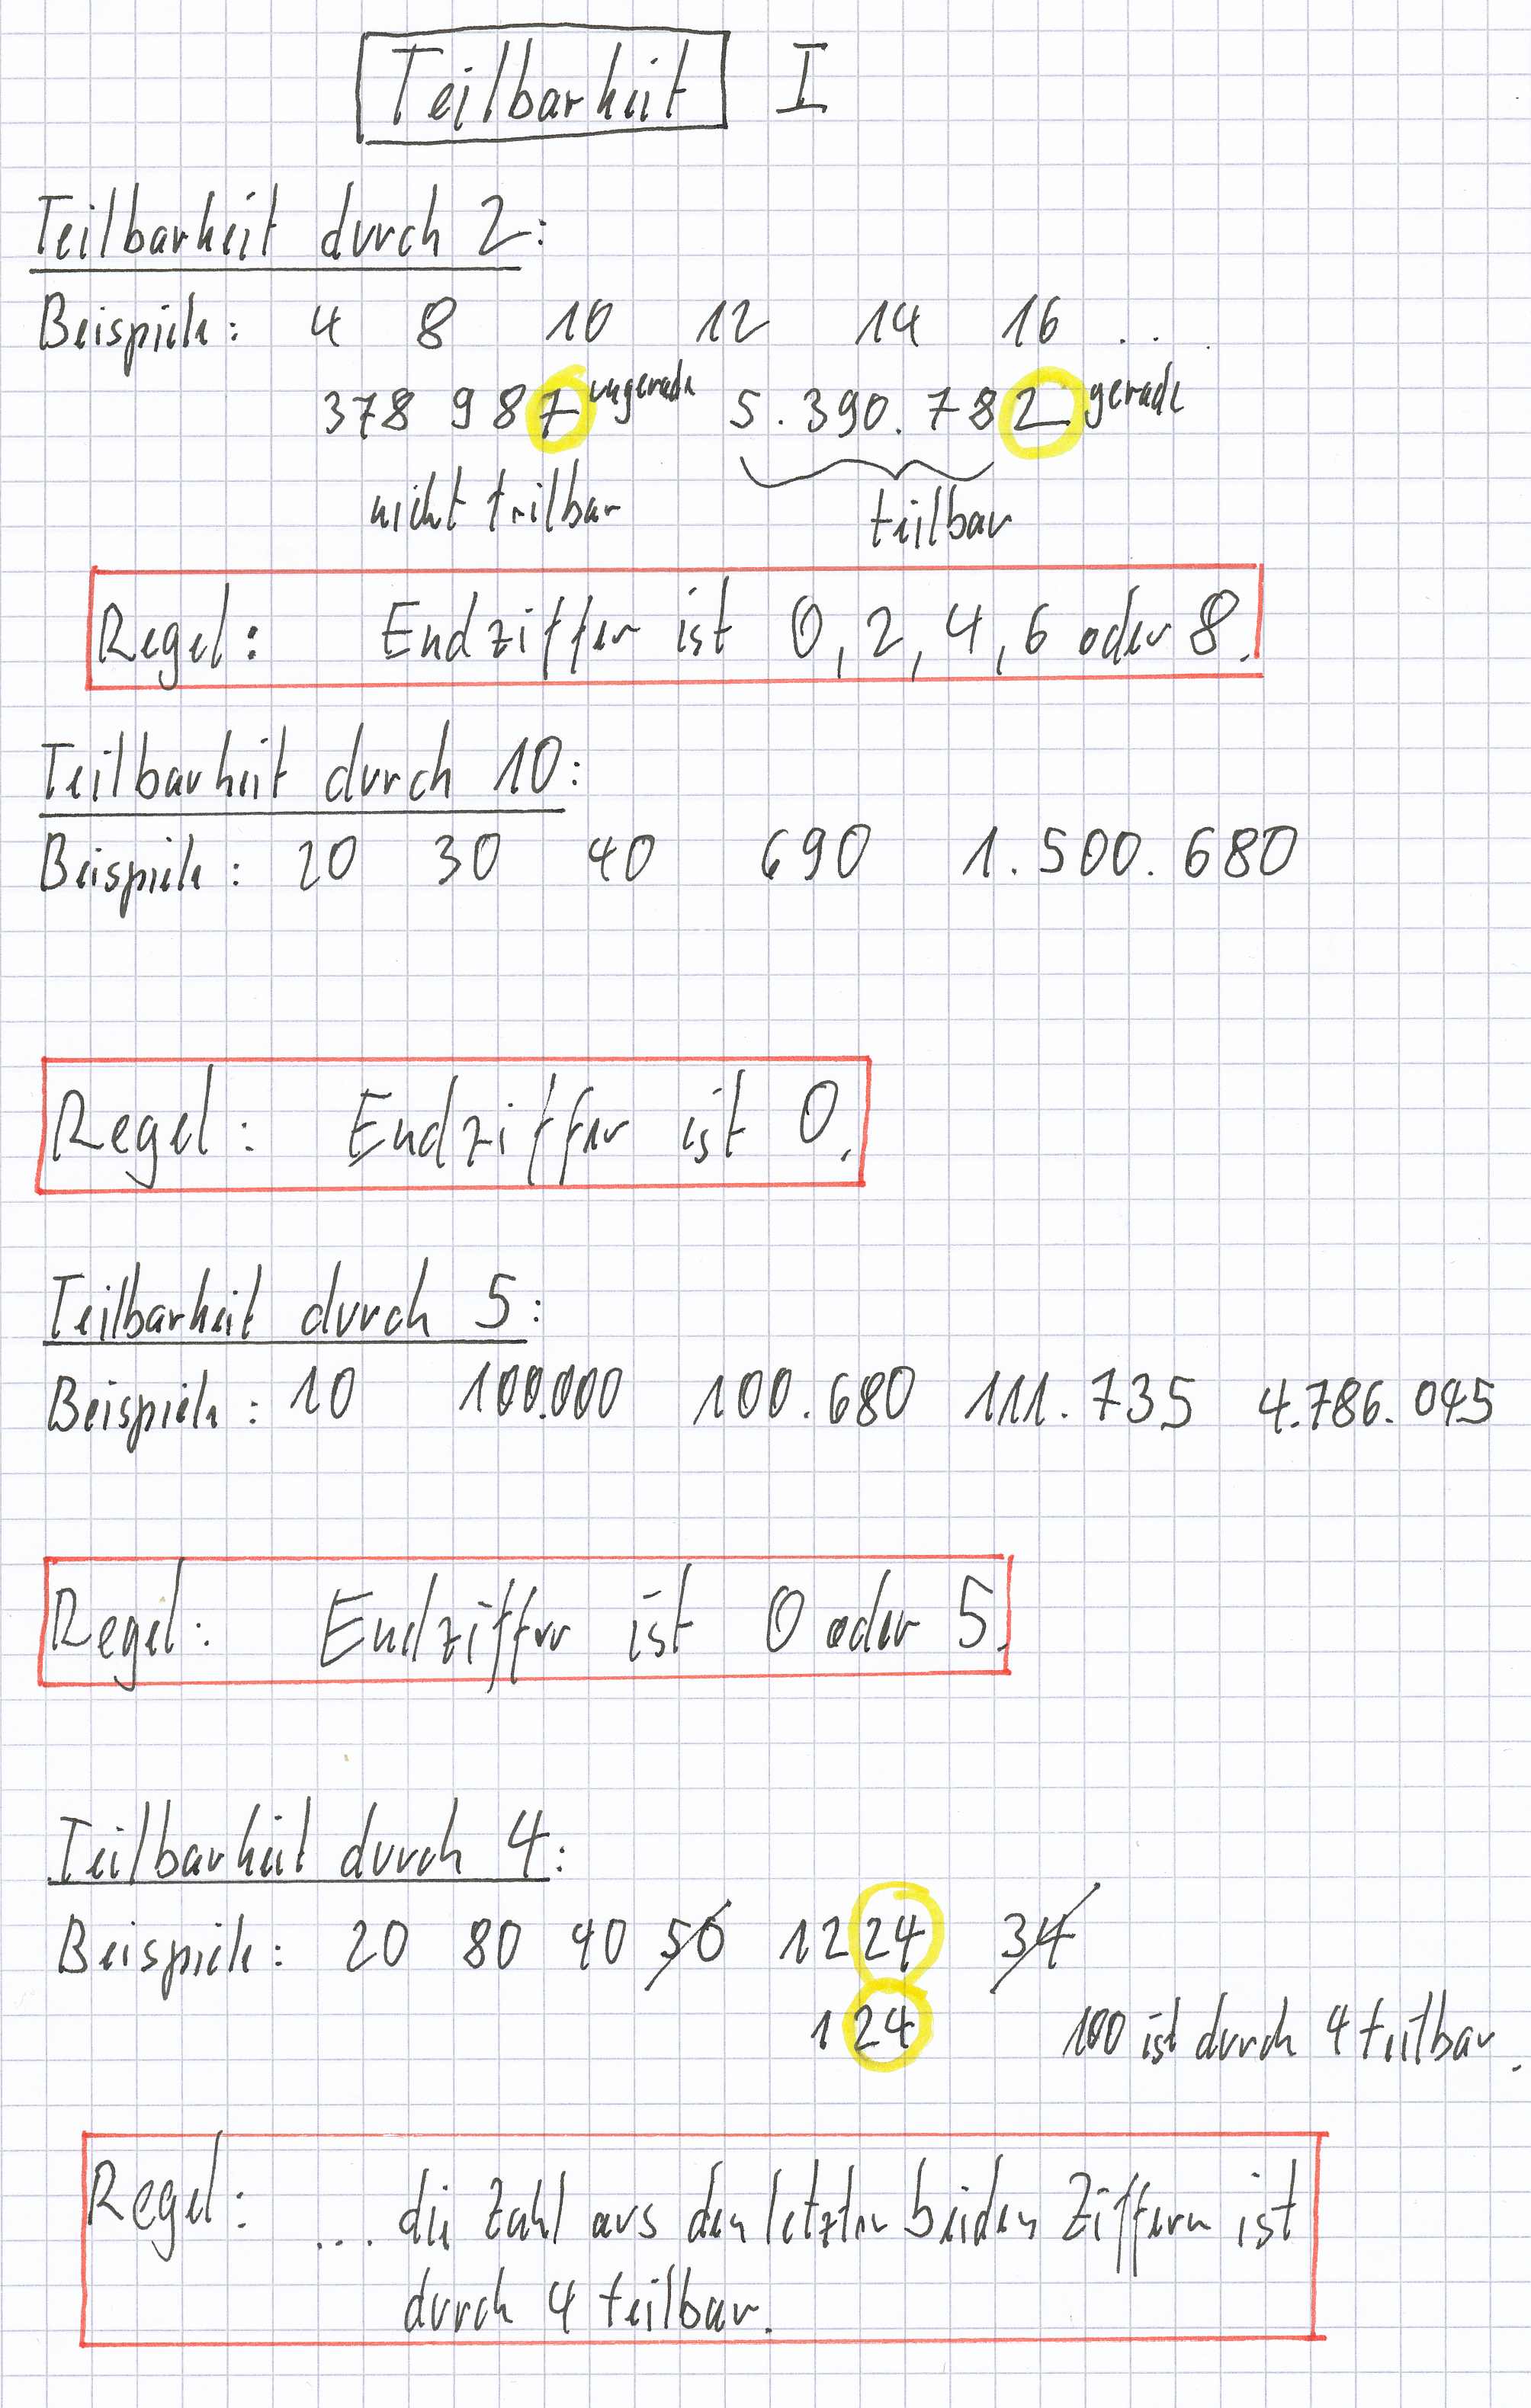 Teilbarkeit I
Teilbarkeit durch 2:
Beispiele: 4 8 10 12 14 16 ...
378 987 ungerade 5.390.782 gerade
nicht teilbar teilbar
Regel: Endziffer ist 0, 2, 4, 6 oder 8.
Teilbarkeit durch 10:
Beispiele: 20 30 40 690 1.500.680
Regel: Endziffer ist 0.
Teilbarkeit durch 5:
Beispiele: 10 100.000 100.680 111.735 4.786.045
Regel: Endziffer ist 0 oder 5.
Teilbarkeit durch 4:
Beispiele: 20 80 40 50 1224 34
124 100 ist durch 4 teilbar.
Regel: ... die Zahl aus den letzten beiden Ziffern ist
durch 4 teilbar.